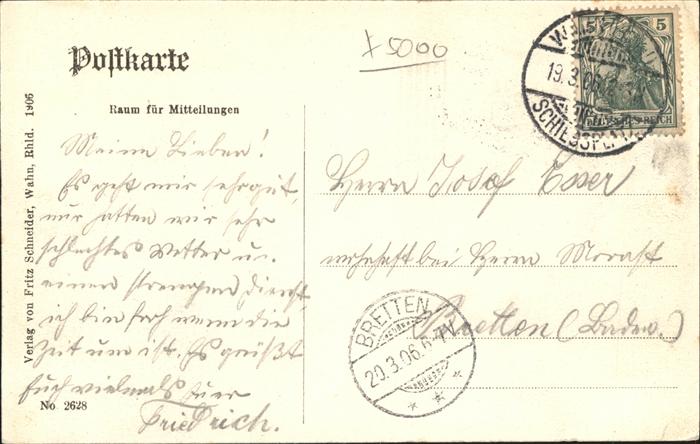 Postkarte
x 5000
Raum für Mitteilungen
Meine Lieben!
Es geht mir sehr gut,
nur hatten wir sehr
schlechtes Wetter u.
einen strengen Dienst,
ich bin froh wenn die
Zeit um ist. Es grüßt
Euch vielmals Euer
Friedrich.
No 2628
Verlag von Fritz Schneider, Wahn, Rhld. 1906
5 5
DEUTSCHES REICH
WAHN
19.3.06
SCHIESSPLATZ
Herrn Josef Esser
wohnhaft bei Herrn Morast
Bretten (Baden.)
BRETTEN
20.3.06. 6-7V.